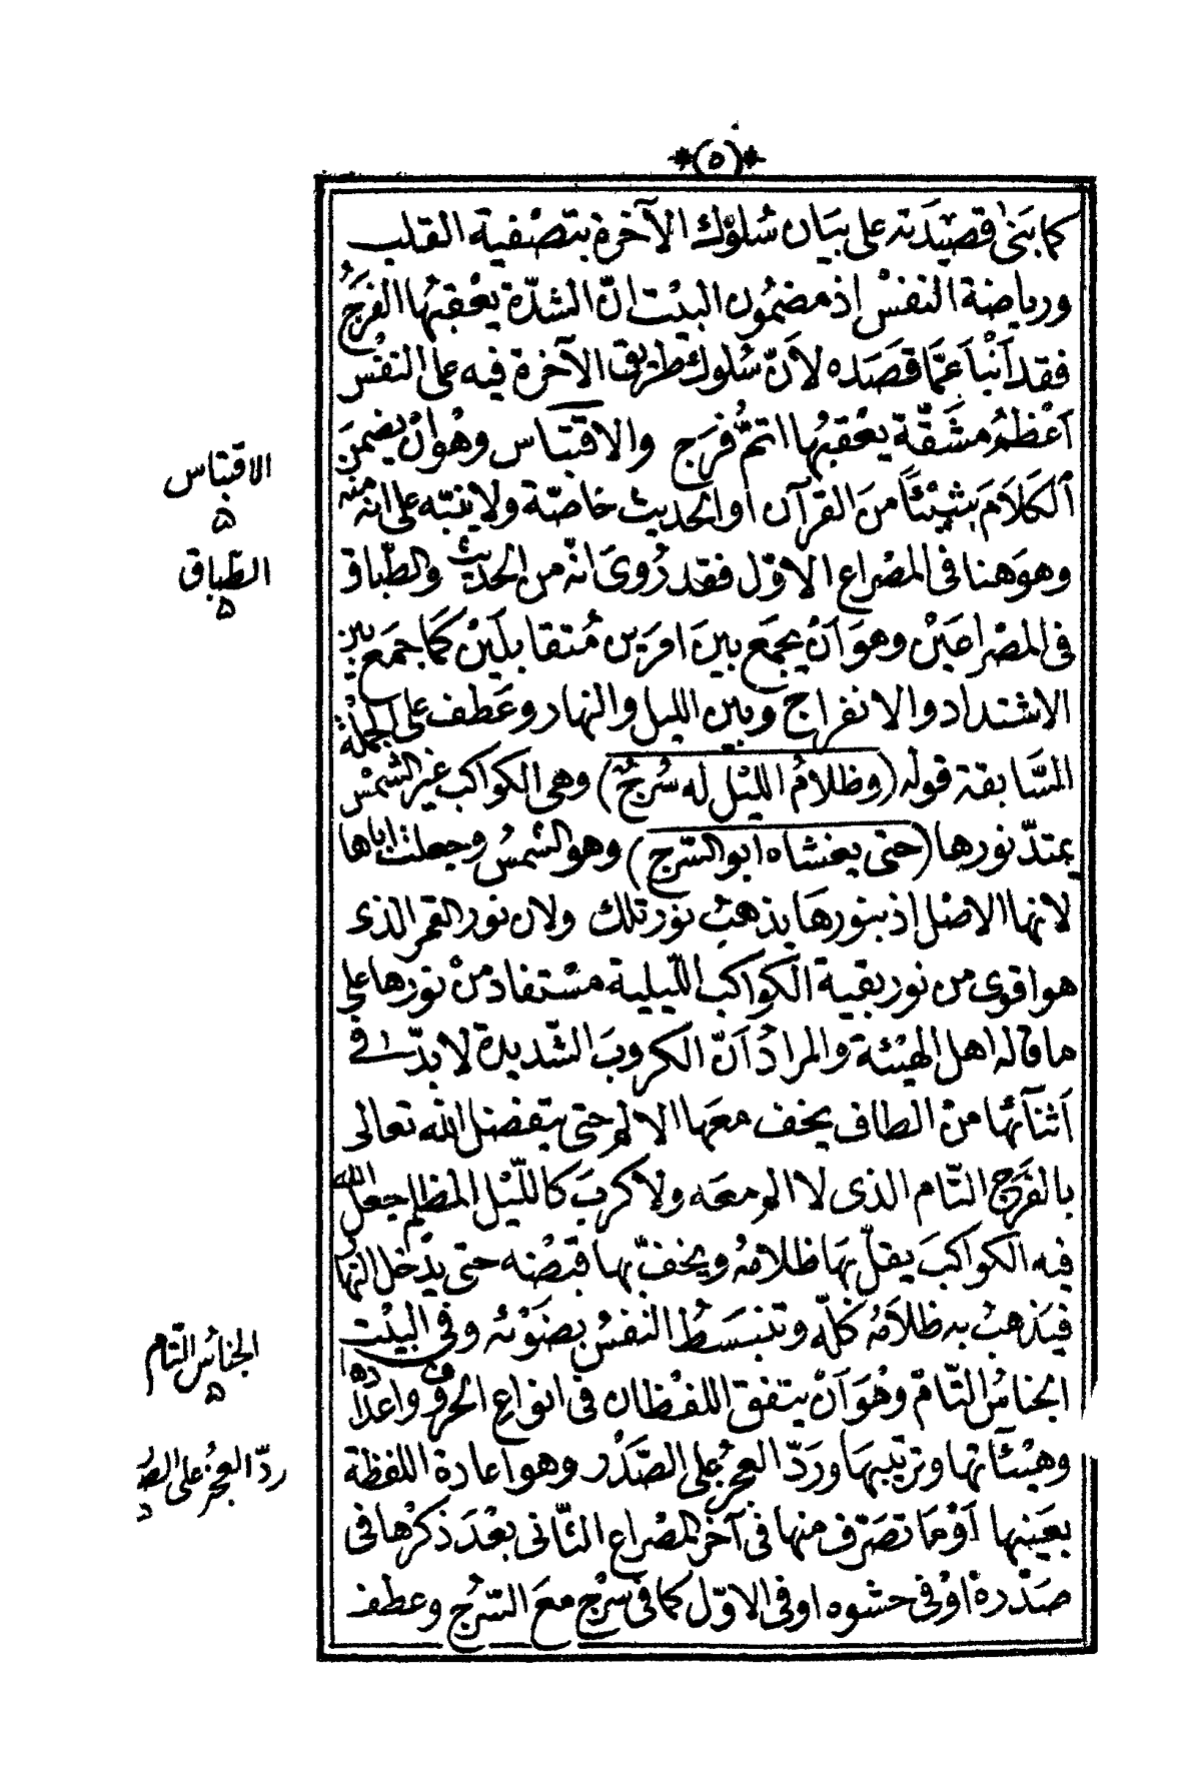 *(٥)*
كما بَنىٰ قصيدَته على بيَان سُلوك الآخرة بتصْفية القلب
ورياضة النفسْ اذ مضمُون البيْت انّ الشدّة يعْقبهُا الفرَجُ
فقد اَنْبأ عمَّا قصَدَه لاَنّ سُلوك طريق الآخرة فيه على النفْس
اَعْظمُ مشَقّة يعْقبهُا اتمُّ فرَج والاقتبَاس وهُو انْ يضمنَ
الكَلامَ شيْئاً منَ القرآن او الحديث خاصّة ولا ينبّه على انه منه
وهوَ هنا في المصْراع الاوّل فقد رُوىَ انّه من الحديث والطّباق
في المصْراعَيْن وهوَ اَنْ يجمَع بينَ امرَين مُتقابلَيْن كمَا جمَع بين
الاشتداد والانفراج وبين الليل والنهار وعَطف على الجملة
السَّابقة قوله (وظلامُ الليْل له سُرجٌ) وهى الكواكب غير الشمْس
يمتدّ نورها (حتى يغشاه ابو السّرج) وهو الشمسُ وجعلت اباها
لانها الاصْل اذ بنورهَا يذهبُ نور تلك ولان نور القمر الذى
هو اقوى من نور بقية الكواكب الليّلية مسْتفاد منْ نورها على
ما قاله اهل الهيْئة والمرادُ اَنّ الكروبَ الشّديدة لا بدّ فى
اَثنآئها منْ الطاف يخف معَها الالم حتى يتفضل الله تعالى
بالفَرَج التّام الذى لا الم معَه ولا كربَ كاللّيْل المظلم جعل الله
فيه الكواكبَ يقلّ بهَا ظلامُه ويخفّ بها قبْضُه حتى يدْخل النهار
فيَذهبُ به ظلاَمُه كلّه وتنبسَط النفسُ بضَوْئه وفى البيْت
الجناسُ التّامّ وهُو اَنْ يتفق اللفظان فى انواع الحروف واعدادها
وهيْئآتها وترتيبهَا ورَدّ العجُز على الصَّدْر وهو اعادة اللفظة
بعَينها اَوْ مَا تصَرّف منها فى آخر المصْراع الثّانى بعْدَ ذكرْها فى
صَدْرهْ اوْ فى حشوه او فى الاوّل كما فى سُرجٍ معَ السّرج وعطف
الاقتباس
٥
الطّباق
٥
الجناسُ التّام
٥
ردّ العجُز على الصَد